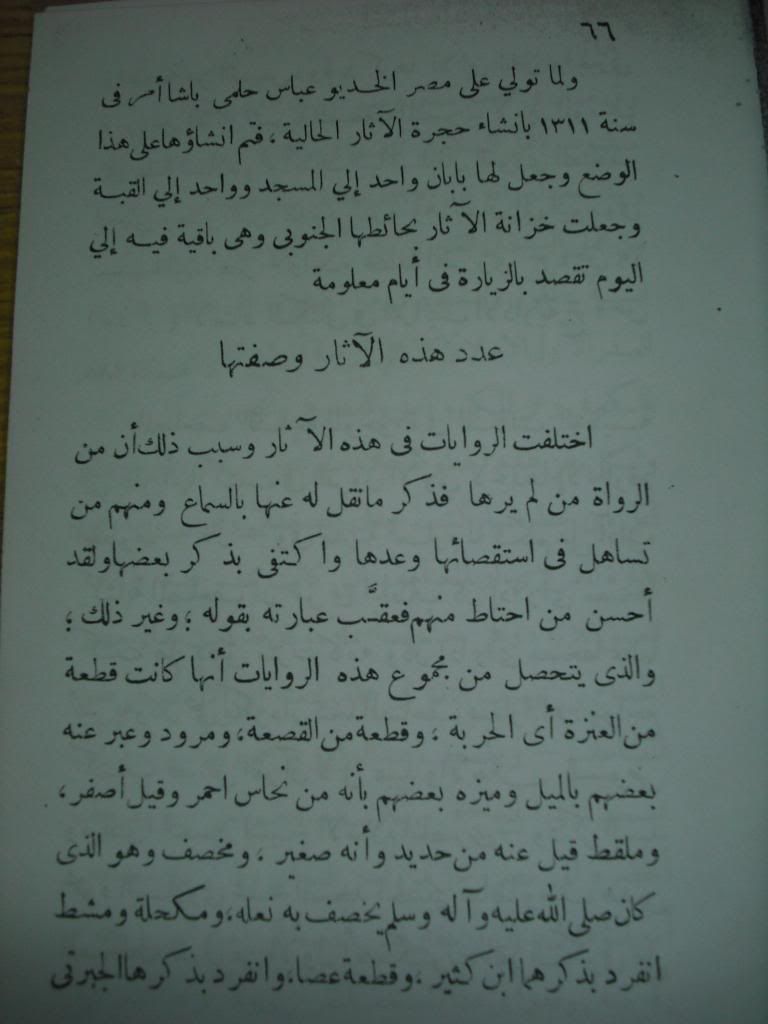 ٦٦
ولما تولي على مصر الخديو عباس حلمى باشا أمر فى
سنة ١٣١١ بانشاء حجرة الآثار الحالية ، فتم انشاؤها على هذا
الوضع وجعل لها بابان واحد إلي المسجد وواحد إلي القبة
وجعلت خزانة الآثار بحائطها الجنوبى وهى باقية فيه إلي
اليوم تقصد بالزيارة فى أيام معلومة
عدد هذه الآثار وصفتها
اختلفت الروايات فى هذه الآثار وسبب ذلك أن من
الرواة من لم يرها فذكر مانقل له عنها بالسماع ومنهم من
تساهل فى استقصائها وعدها واكتفى بذكر بعضها ولقد
أحسن من احتاط منهم فعقَّب عبارته بقوله ؛ وغير ذلك ؛
والذى يتحصل من مجموع هذه الروايات أنها كانت قطعة
من العنزة أى الحربة ، وقطعة من القصعة، ومرود وعبر عنه
بعضهم بالميل وميزه بعضهم بأنه من نحاس احمر وقيل أصفر،
وملقط قيل عنه من حديد وأنه صغير ، ومخصف وهو الذى
كان صلى الله عليه وآله وسلم يخصف به نعله، ومكحلة ومشط
انفرد بذكرهما ابن كثير ، وقطعة عصا، وانفرد بذكرها الجبرتى